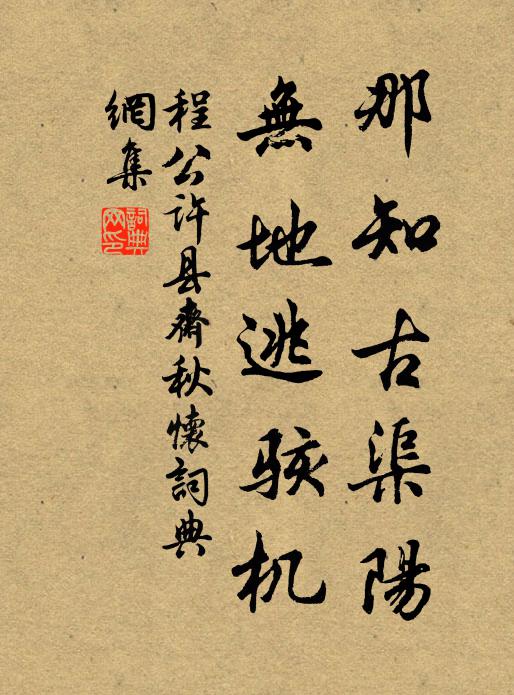 那知古渠陽
無地逃駭机
程公許县齋秋懷詞典
網集
詞典
网印